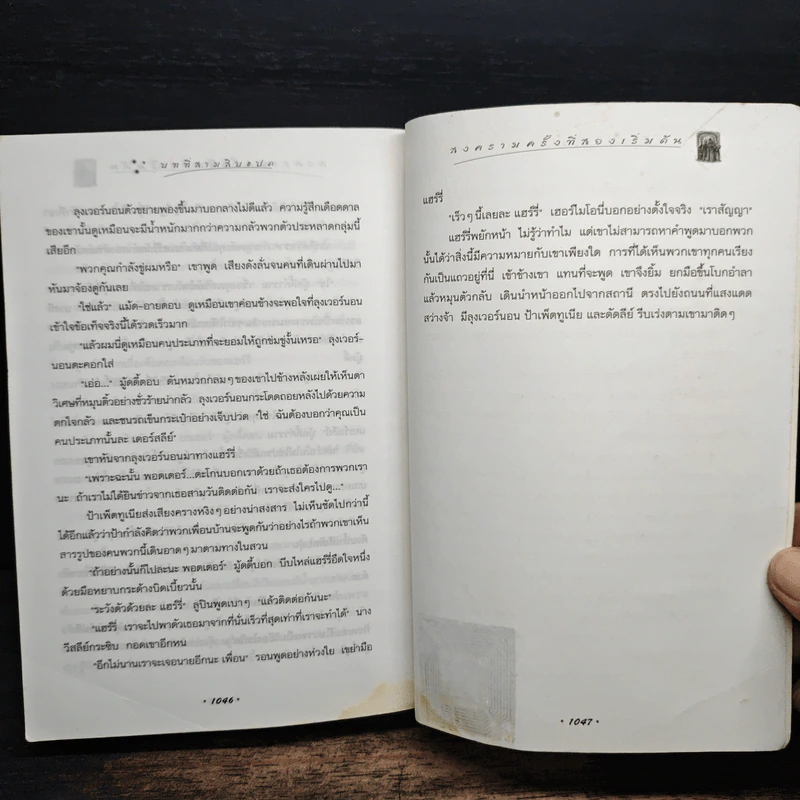 บทที่สามสิบแปด
ลุงเวอร์นอนตัวขยายพองขึ้นมาบอกลางไม่ดีแล้ว ความรู้สึกเดือดดาล
ของเขานั้นดูเหมือนจะมีน้ำหนักมากกว่าความกลัวพวกตัวประหลาดกลุ่มนี้
เสียอีก
"พวกคุณกำลังขู่ผมหรือ" เขาพูด เสียงดังลั่นจนคนที่เดินผ่านไปมา
หันมาจ้องดูกันเลย
"ใช่แล้ว" แม้ด-อายตอบ ดูเหมือนเขาค่อนข้างจะพอใจที่ลุงเวอร์นอน
เข้าใจข้อเท็จจริงนี้ได้รวดเร็วมาก
"แล้วผมนี่ดูเหมือนคนประเภทที่จะยอมให้ถูกข่มขู่งั้นเหรอ" ลุงเวอร์-
นอนตะคอกใส่
"เอ่อ..." มู้ดดี้ตอบ ดันหมวกกลมๆ ของเขาไปข้างหลังเผยให้เห็นตา
วิเศษที่หมุนติ้วอย่างชั่วร้ายน่ากลัว ลุงเวอร์นอนกระโดดถอยหลังไปด้วยความ
ตกใจกลัว และชนรถเข็นกระเป๋าอย่างเจ็บปวด "ใช่ ฉันต้องบอกว่าคุณเป็น
คนประเภทนั้นละ เดอร์สลีย์"
เขาหันจากลุงเวอร์นอนมาทางแฮร์รี่
"เพราะฉะนั้น พอตเตอร์...ตะโกนบอกเราด้วยถ้าเธอต้องการพวกเรา
นะ ถ้าเราไม่ได้ยินข่าวจากเธอสามวันติดต่อกัน เราจะส่งใครไปดู..."
ป้าเพ็ตทูเนียส่งเสียงครางหงิงๆ อย่างน่าสงสาร ไม่เห็นชัดไปกว่านี้
ได้อีกแล้วว่าป้ากำลังคิดว่าพวกเพื่อนบ้านจะพูดกันว่าอย่างไรถ้าพวกเขาเห็น
สารรูปของคนพวกนี้เดินอาดๆ มาตามทางในสวน
"ถ้าอย่างนั้นก็ไปละนะ พอตเตอร์" มู้ดดี้บอก บีบไหล่แฮร์รี่อึดใจหนึ่ง
ด้วยมือหยาบกระด้างบิดเบี้ยวนั้น
"ระวังตัวด้วยละ แฮร์รี่" ลูปินพูดเบาๆ "แล้วติดต่อกันนะ"
"แฮร์รี่ เราจะไปพาตัวเธอมาจากที่นั่นเร็วที่สุดเท่าที่เราจะทำได้" นาง
วีสลีย์กระซิบ กอดเขาอีกหน
"อีกไม่นานเราจะเจอนายอีกนะ เพื่อน" รอนพูดอย่างห่วงใย เขย่ามือ
• 1046 •
สงครามครั้งที่สองเริ่มต้น
แฮร์รี่
"เร็วๆ นี้เลยละ แฮร์รี่" เฮอร์ไมโอนี่บอกอย่างตั้งใจจริง "เราสัญญา"
แฮร์รี่พยักหน้า ไม่รู้ว่าทำไม แต่เขาไม่สามารถหาคำพูดมาบอกพวก
นั้นได้ว่าสิ่งนี้มีความหมายกับเขาเพียงใด การที่ได้เห็นพวกเขาทุกคนเรียง
กันเป็นแถวอยู่ที่นี่ เข้าข้างเขา แทนที่จะพูด เขาจึงยิ้ม ยกมือขึ้นโบกอำลา
แล้วหมุนตัวกลับ เดินนำหน้าออกไปจากสถานี ตรงไปยังถนนที่แสงแดด
สว่างจ้า มีลุงเวอร์นอน ป้าเพ็ตทูเนีย และดัดลีย์ รีบเร่งตามเขามาติดๆ
• 1047 •